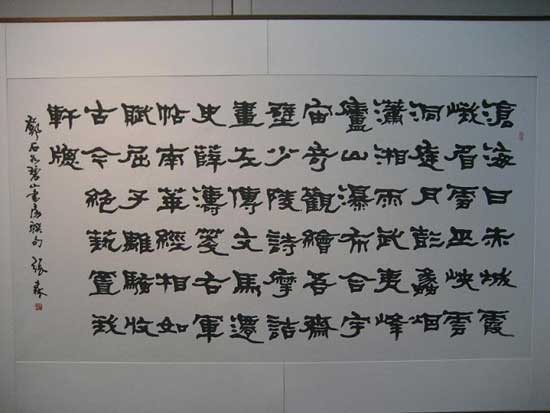 滄海日赤城霞
峨眉雪巫峽雲
洞庭月彭蠡烟
瀟湘雨武夷峰
廬山瀑布合宇
宙奇觀繪吾齋
壁少陵詩摩詰
畫左傳文馬遷
史薛濤箋右軍
帖南華經相如
賦屈子離騷收
古今絕藝置我
軒牖
鄧石如碧山書屋聯句 張森